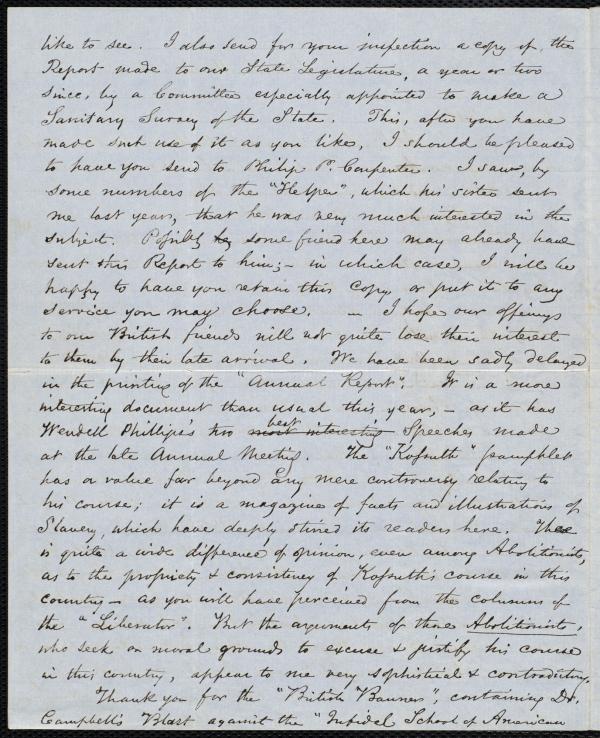 like to see. I also send for your inspection a copy of the
Report made to our State Legislature, a year or two
since, by a Committee especially appointed to make a
Sanitary Survey of the State. This, after you have
made such use of it as you like, I should be pleased
to have you send to Philip P. Carpenter. I saw, by
some numbers of the "Helper", which his sister sent
me last year, that he was very much interested in the
subject. Possibly by some friend here may already have
sent this Report to him; - in which case, I will be
happy to have you retain this Copy, or put it to any
service you may choose. — I hope our offerings
to our British friends will not quite lose their interest
to them by their late arrival. We have been sadly delayed
in the printing of the "Annual Report". It is a more
interesting document than usual this year, - as it has
Wendell Phillips's two most interesting best Speeches made
at the late Annual Meeting. The "Kossuth" pamphlet
has a value far beyond any mere controversy relating to
his course; it is a magazine of facts and illustrations of
Slavery, which have deeply stirred its readers here. There
is quite a wide difference of opinion, even among Abolitionists,
as to the propriety & consistency of Kossuth's course in this
country - as you will have perceived from the columns of
the "Liberator". But the arguments of those Abolitionists,
who seek on moral grounds to excuse & justify his course
in this country, appear to me very sophistical & contradictory.
Thank you for the "British Banners", containing Dr.
Campbell's Blast against the "Infidel School of American